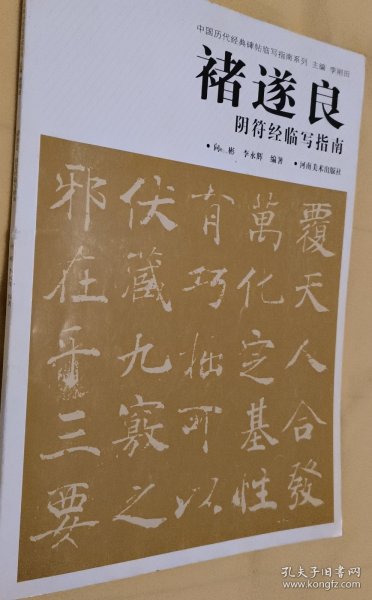 中国历代经典碑帖临写指南系列 主编 李刚田
褚遂良
阴符经临写指南
•向 彬 李永辉 编著 •河南美术出版社
覆天人合發
萬化定基性
有巧拙可以
伏藏九竅之
邪在乎三要
孔夫子旧书网
www.kongfz.com